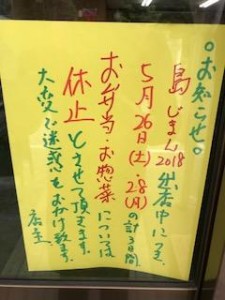 。お知らせ。
島じまん2018 出店中につき、
5月26日(土)、28(月)の計3日間
お弁当・お惣菜については
休止とさせて頂きます。
大変ご迷惑をおかけ致します。
店主